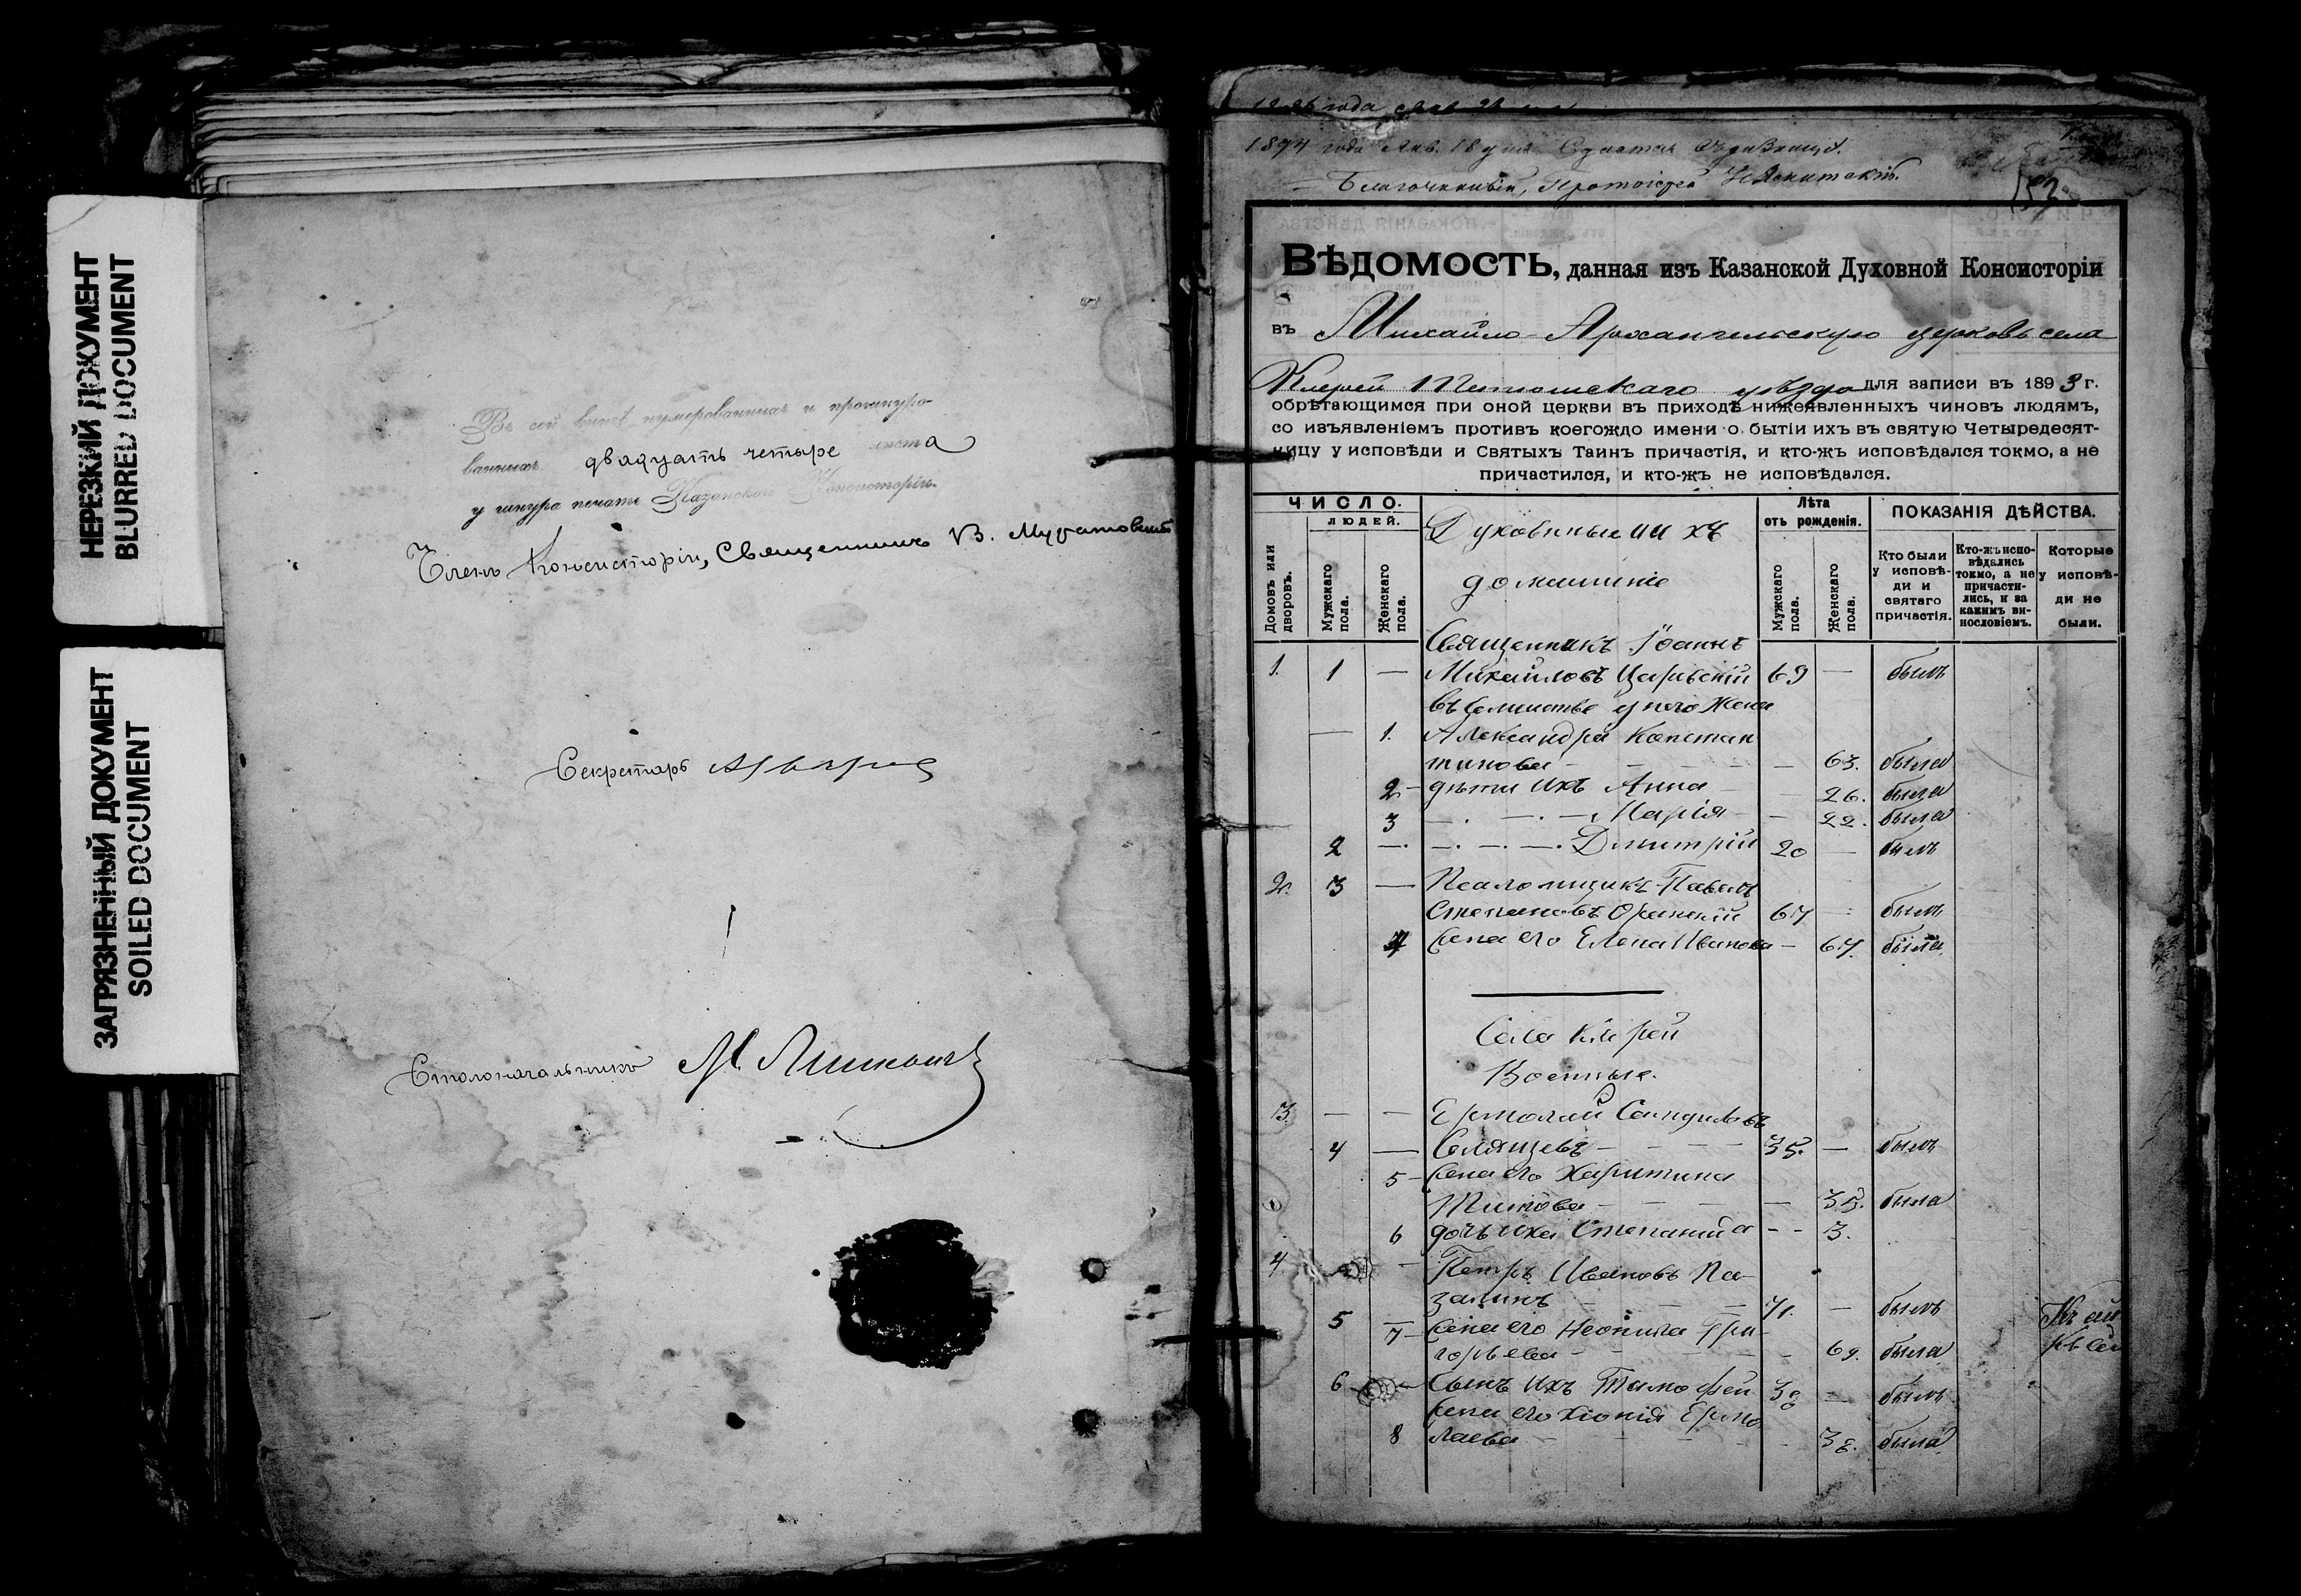 НЕРЕЗКИЙ ДОКУМЕНТ
BLURRED DOCUMENT
ЗАГРЯЗНЕННЫЙ ДОКУМЕНТ
SOILED DOCUMENT
Въ сей книгѣ нумерованныхъ и прошнуро-
ванныхъ двадцать четыре листа
у шнура печать Казанской Консисторіи.
Членъ Консисторіи, Священникъ В.
Секретарь
Столоначальникъ М.
1894 года Янв. 18 дня
Благочинный, Протоіерей
ВѢДОМОСТЬ, данная изъ Казанской Духовной Консисторіи
въ Михайло-Архангельскую церковь села
Кирѣй Тетюшскаго уѣзда для записи въ 1893 г.
обрѣтающимся при оной церкви въ приходѣ нижеявленныхъ чиновъ людямъ,
со изъявленіемъ противъ коегождо имени о бытіи ихъ въ святую Четыредесят-
ницу у исповѣди и Святыхъ Таинъ причастія, и кто-жъ исповѣдался токмо, а не
причастился, и кто-жъ не исповѣдался.
ЧИСЛО.
ЛЮДЕЙ.
Домовъ или дворовъ.
Мужскаго пола.
Женскаго пола.
Духовные и ихъ
домашніе
Лѣта
отъ рожденія.
Мужскаго пола.
Женскаго пола.
ПОКАЗАНІЯ ДѢЙСТВА.
Кто были у исповѣ-
ди и святаго причастія.
Кто-жъ испо-
вѣдались токмо, а не причасти-
лись, и за какимъ ви-
нословіемъ.
Которые у исповѣ-
ди не были.
Священникъ Іоаннъ
1. 1 — Михайловъ Царевскій 69 — былъ
въ семействѣ у него жена
— 1. Александра Констан
тинова — 63. была
2 — дѣти ихъ Анна — 26. была
3 — Марія — 22. была
2 — Димитрій 20 — былъ
2. 3 — Псаломщикъ Павелъ
Степановъ 67 — былъ
4 жена его Елена Иванова — 67. была
Села Кирѣй
Военные.
3 — — Ермолай
4 — 35. — былъ
5 — жена его Харитина
Титова — 35. была
6 дочь ихъ Степанида — 3.
4 — Петръ Ивановъ Ла-
зминъ 71. — былъ
5 7 — жена его Неонила Гри-
горьева — 69. была
6 — Сынъ ихъ Тимофей 38 — былъ
жена его Хіонія Ермо
8 лаева — 38. была